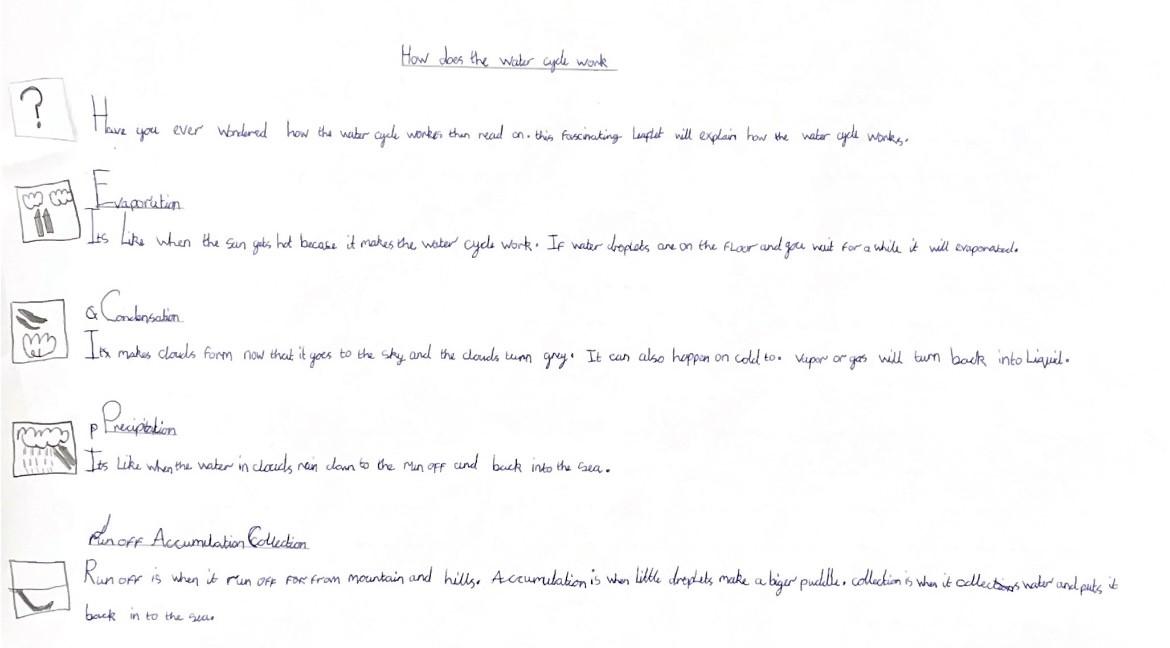 How does the water cycle work
?
Have you ever wondered how the water cycle workes then read on. this fascinating leaflet will explain how the water cycle workes.
Evaporation
Its Like when the sun gets hot becase it makes the water cycle work. If water droplets are on the Floor and you wait for a while it will evaporated.
Condensation
Its makes clouds form now that it goes to the sky and the clouds turn grey. It can also happen on cold to. vapor or gas will turn back into Liquid.
p Precipitation
Its Like when the water in clouds rain down to the run off and back into the sea.
Run off Accumulation Collection
Run off is when it run off from mountain and hills. Accumulation is when little droplets make a biger puddle. collection is when it collections water and puts it
back in to the sea.